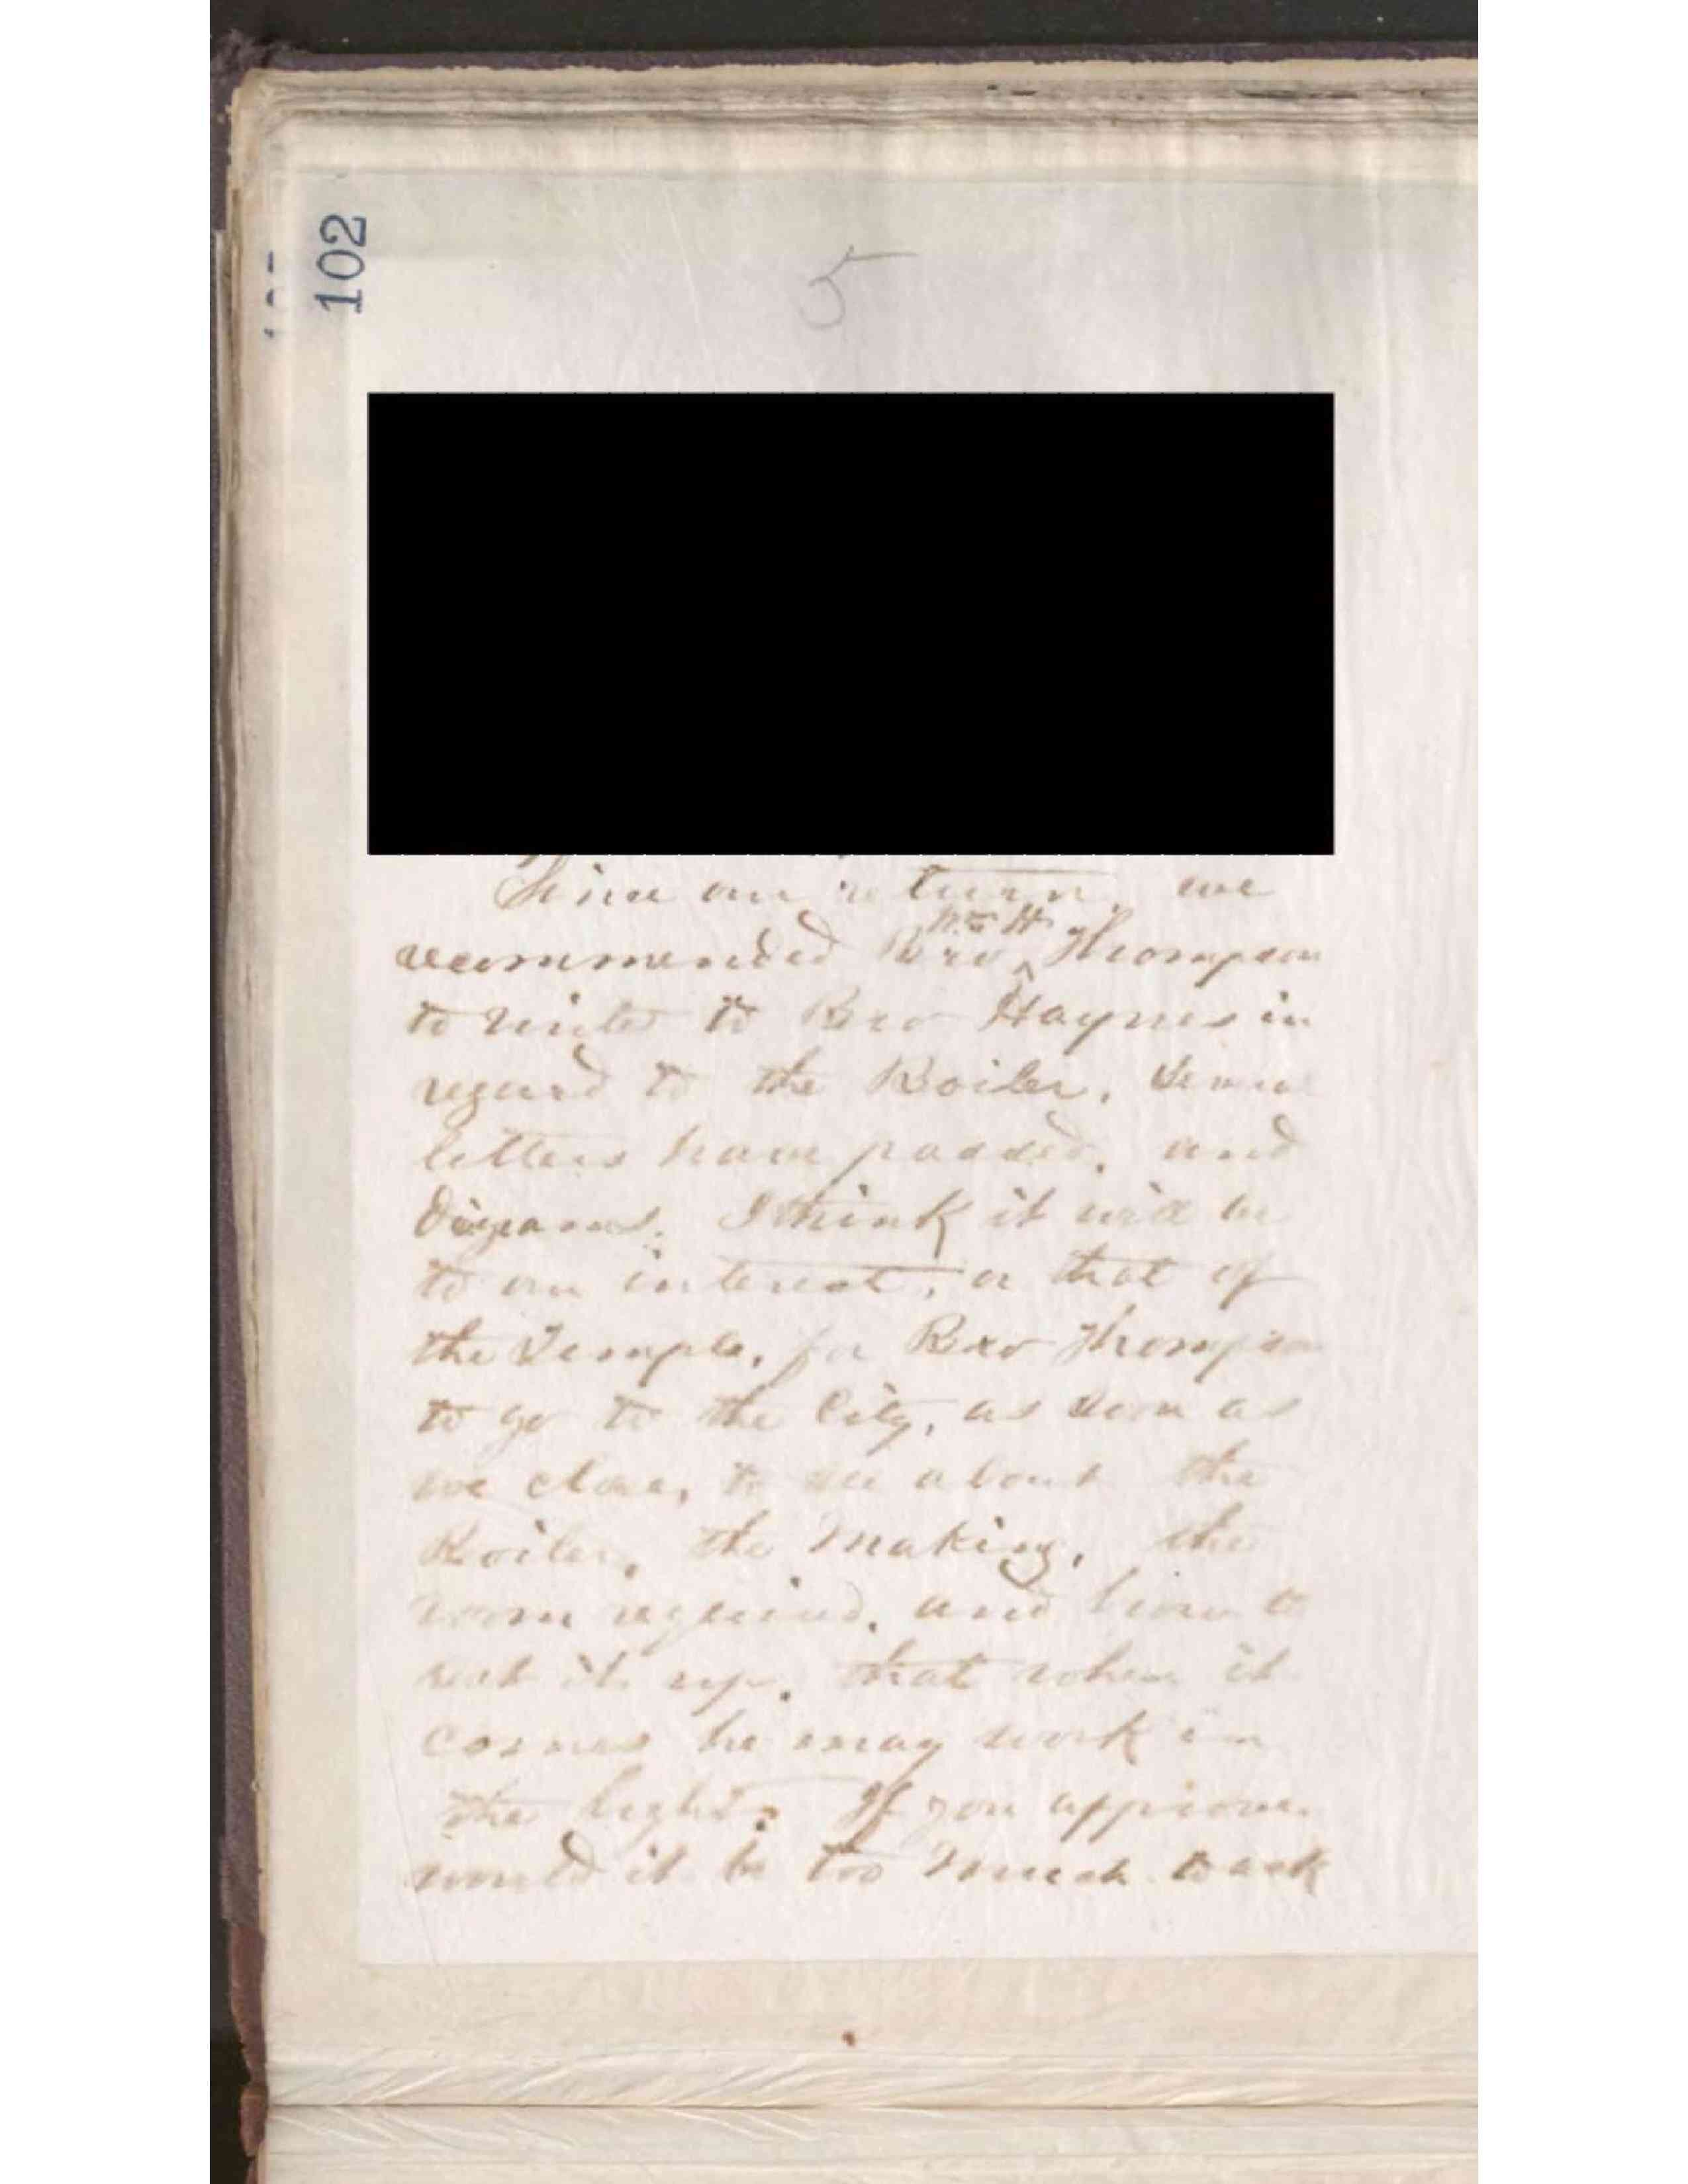 102
5
Since our return, we
Wm H
recommended Bro ^ Thompson
to write to Bro Haynes in
regard to the Boiler. Some
letters have passed, and
Diagrams. I think it will be
to our interest, or that of
the Temple, for Bro Thompson
to go to the City, as soon as
we close, to see about the
Boiler, the making, the
room required, and how to
set it up. that when it
comes he may work in
the light. If you approve.
would it be too much to ask